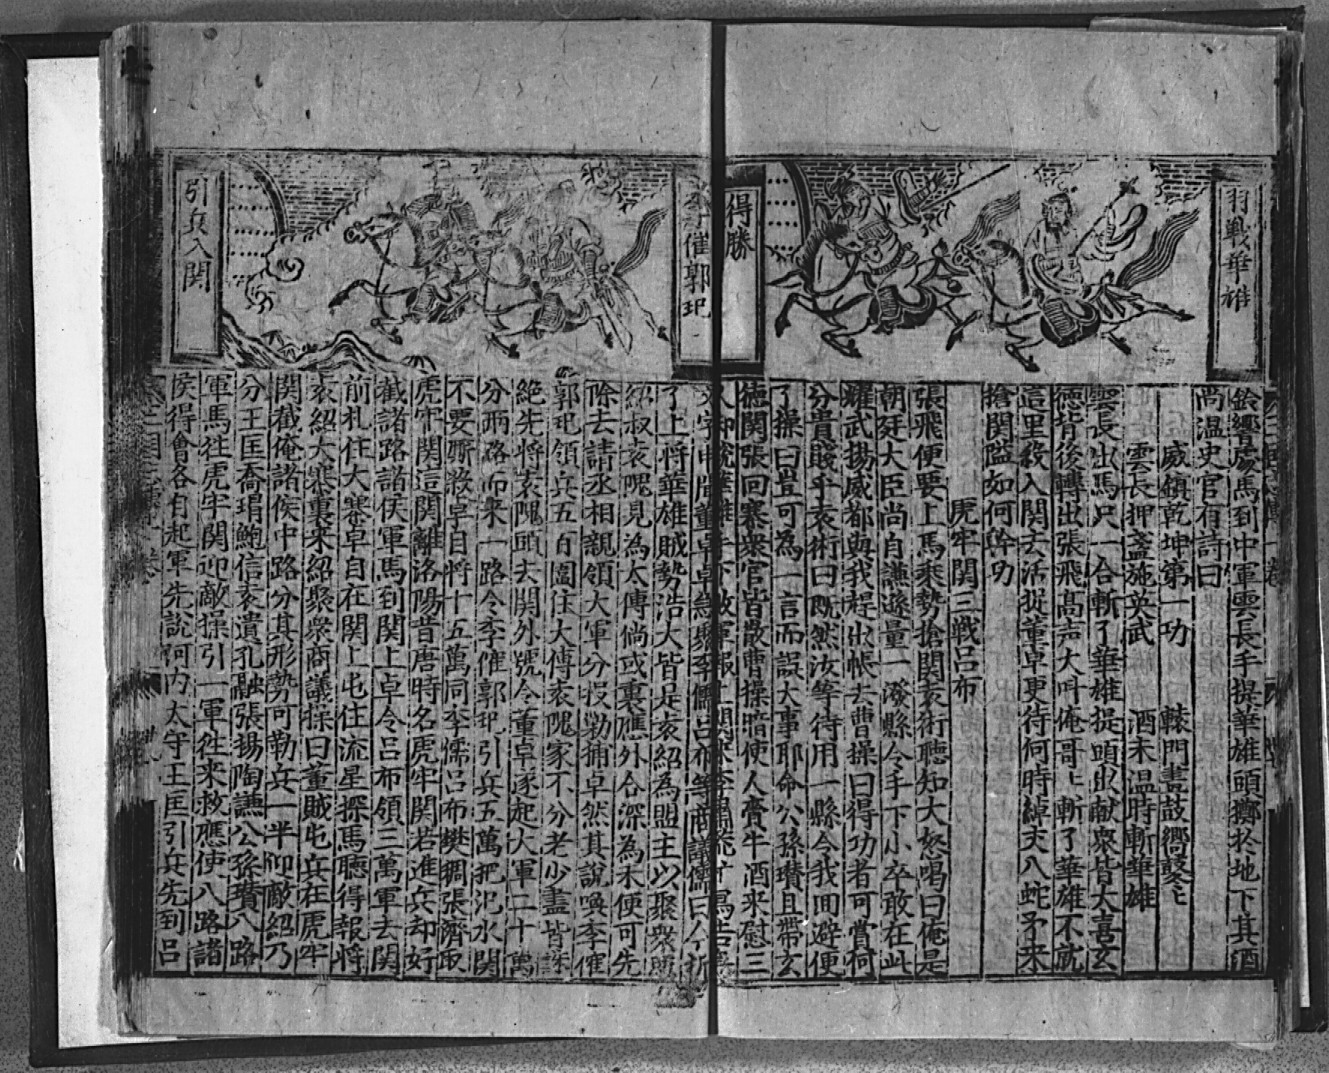 羽戰華雄
得勝
鈴響處馬到中軍雲長手提華雄頭擲於地下其酒
尚温史官有詩曰
威鎮乾坤第一功　轅門畫鼓響鼕〻
雲長押盞施英武　酒未温時斬華雄
雲長出馬只一合斬了華雄提頭出献衆皆大喜玄
德背後轉出張飛高声大叫俺哥〻斬了華雄不就
這里殺入関去活捉董卓更待何時綽丈八蛇矛來
搶関隘如何幹功
虎牢関三戰呂布
張飛便要上馬乘勢搶関袁術聽知大怒喝曰俺是
朝廷大臣尚自謙遜量一潑縣令手下小卒敢在此
耀武揚威都與我趕出帳去曹操曰得功者可賞何
分貴賤乎袁術曰既然汝等待用一縣令我囬避便
了操曰豈可為一言而誤大事耶命公孫瓚且帶玄
德関張回寨衆官皆散曹操暗使人賫牛酒來慰三
李傕郭汜
引兵入関
了上将華雄賊勢浩大皆是袁紹為盟主以聚衆
紹叔袁隗見為太傅倘或裏應外合深為未便可先
除去請丞相親領大軍分投勦捕卓然其說喚李傕
郭汜領兵五百圍住太傅袁隗家不分老少盡皆誅
絶先将袁隗頭去関外號令董卓遂起大軍二十萬
分兩路而來一路令李傕郭汜引兵五萬把汜水関
不要厮殺卓自将十五萬同李儒呂布樊稠張濟取
虎牢関這関離洛陽昔唐時名虎牢関若進兵却好
截諸路諸侯軍馬到関上卓令呂布領三萬軍去関
前札住大寨卓自在関上屯住流星探馬聽得報将
袁紹大寨裏來紹聚衆商議操曰董賊屯兵在虎牢
関截俺諸侯中路分其形勢可勒兵一半迎敵紹乃
分王匡喬瑁鮑信袁遺孔融張揚陶謙公孫瓚八路
軍馬徃虎牢関迎敵操引一軍徃來救應使八路諸
侯得會各自起軍先說河内太守王匡引兵先到呂